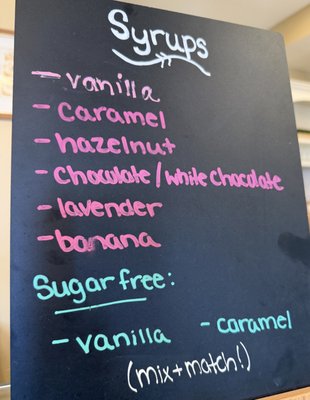 Syrups
- vanilla
- caramel
- hazelnut
- chocolate / white chocolate
- lavender
- banana
Sugar free:
- vanilla - caramel
(mix + match!)